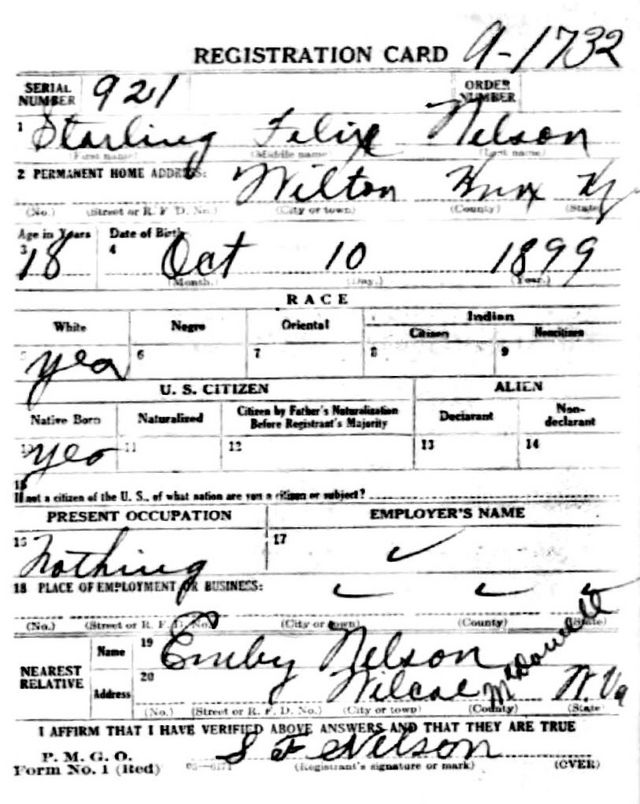 REGISTRATION CARD 9-1732
SERIAL NUMBER 921 ORDER NUMBER
1 Starling Felix Nelson
(First name) (Middle name) (Last name)
2 PERMANENT HOME ADDRESS: Wilton Knox Ky
(No.) (Street or R. F. D. No.) (City or town) (County) (State)
Age in Years Date of Birth
3 18 4 Oct 10 1899
(Month.) (Day.) (Year.)
RACE
White Negro Oriental Indian
Citizen Noncitizen
yes 6 7 8 9
U. S. CITIZEN ALIEN
Native Born Naturalized Citizen by Father's Naturalization Before Registrant's Majority Declarant Non-declarant
10 yes 11 12 13 14
15
If not a citizen of the U. S., of what nation are you a citizen or subject?
PRESENT OCCUPATION EMPLOYER'S NAME
16 nothing 17 ✓
18 PLACE OF EMPLOYMENT OR BUSINESS: ✓ ✓ ✓
(No.) (Street or R. F. D. No.) (City or town) (County) (State)
NEAREST RELATIVE Name 19 Nelson
Address 20 Wilcoe McDowell W. Va
(No.) (Street or R. F. D. No.) (City or town) (County) (State)
I AFFIRM THAT I HAVE VERIFIED ABOVE ANSWERS AND THAT THEY ARE TRUE
P. M. G. O.
Form No. 1 (Red) S F Nelson
(Registrant's signature or mark) (OVER)